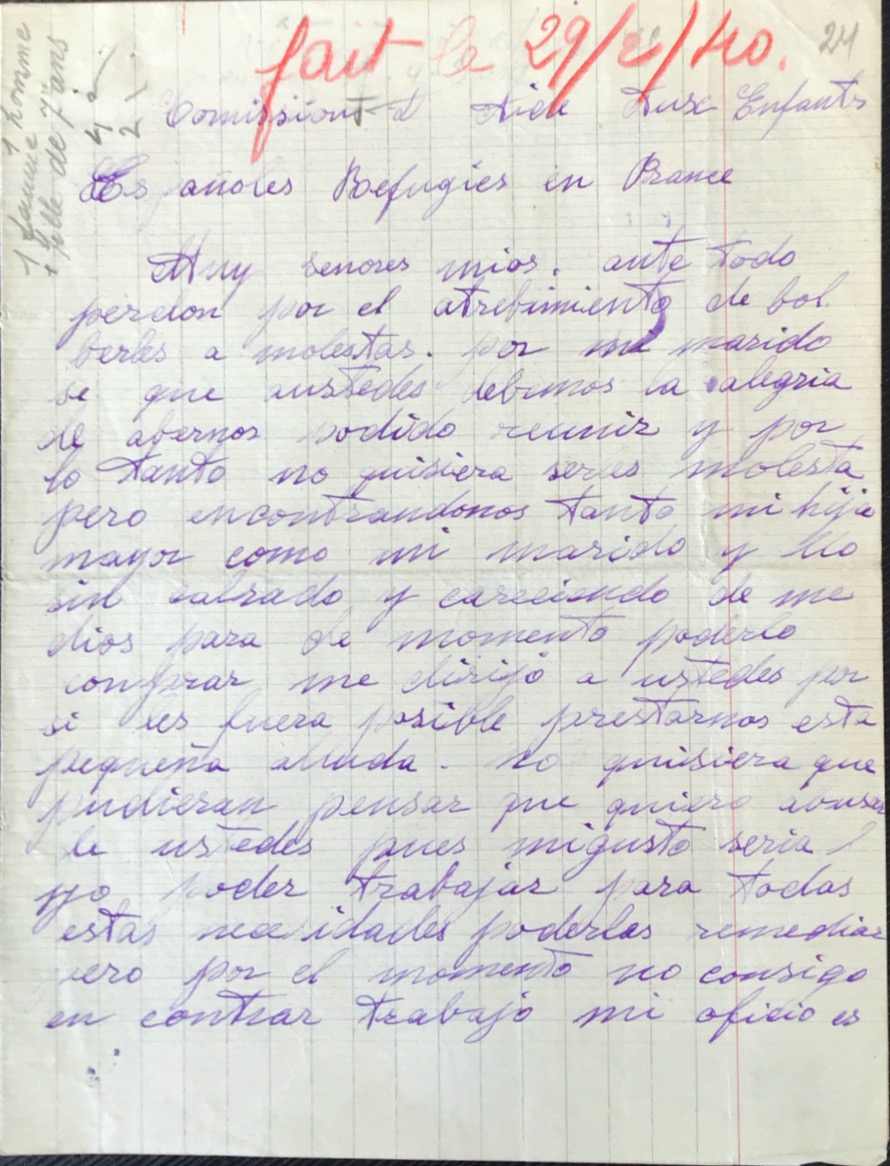 fait le 29/2/40.
24
1 homme
1 famme
1 fille de 7 ans
4
2
Comission d Aide Aux Enfants
Españoles Roefugies en Brance
Muy senores mios. ante todo
perdon por el atrebimiento de bol
berles a molestas. por mi marido
se que austedes debemos la alegria
de abernos podido reunir y por
lo tanto no quisiera serles molesta
pero encontrandonos tanto mi hija
mayor como mi marido y llo
sin calzado y careciendo de me
dios para de momento poderlo
comprar me dirijo a ustedes por
si les fuera posible prestarnos esta
pequeña alluda. no quisiera que
pudieran pensar que quiero abusar
de ustedes pues migusto seria
yo poder trabajar para todas
estas necesidades poderlas remediar
pero por el momento no consigo
en contrar trabajo mi oficio es